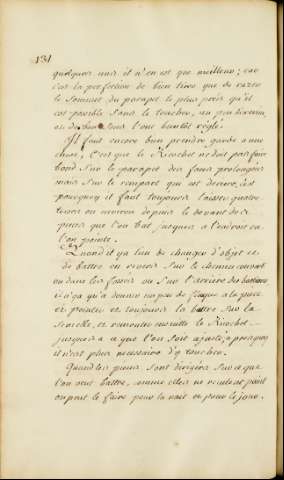 131
quelques uns il n'en est que meilleur; car
c'est la perfection de bien tirer que de raser
le sommet du parapet le plus près qu'il
est possible sans le toucher, un peu
ou de plus l'on bientôt réglé.
Il faut encore bien prendre garde a une
chose, C'est que le Ricochet ne doit pas faire
bond sur le parapet des faces prolongées
mais sur le rempart qui est derriere, c'est
pourquoy il faut toujours laisser quatre
toises ou environ depuis le devant de
pieces que l'on bat jusques a l'endroit ou
l'on pointe.
Quand il s'agira de changer d'objet et
de battre en revers sur le chemin couvert
ou dans les fossés ou sur l'arriere des bastions
il n'y a qu'a donner un peu de à la piece
et pointer et toujours la battre sur la
semelle, et remonter ensuitte le Ricochet
jusques a ce que l'on soit ajusté, aprés quoy
il n'est plus necessaire d'y toucher.
Quand les pieces sont dirigées sur ce que
l'on veut battre, comme elles ne reculent point
on peut le faire pour la nuit et pour le jour.